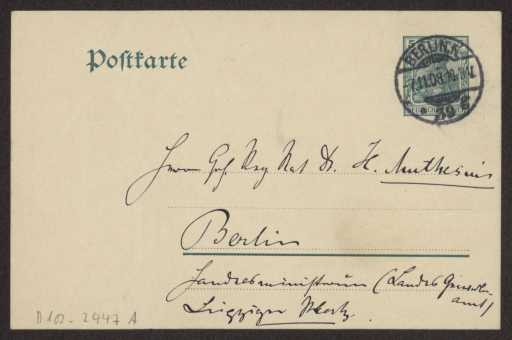 Postkarte
BERLIN
7.11.08.
Herrn Geh. Reg Rat Dr. H. Muthesius
Berlin
Landesministerium (Landes Gewerbe-
amt)
Leipziger Platz.
D 102 - 2447 A